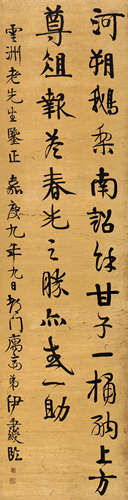 河朔鵝梨南詔餘甘子一桶納上方
尊俎報荅春光之勝亦或一助
雲洲老先生鑒正 嘉慶九年九日都門寓齋弟伊秉綬臨